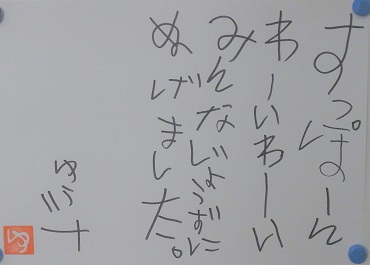 すっぽーん
わーいわーい
みんなじょうずに
ぬげました。
ゆ